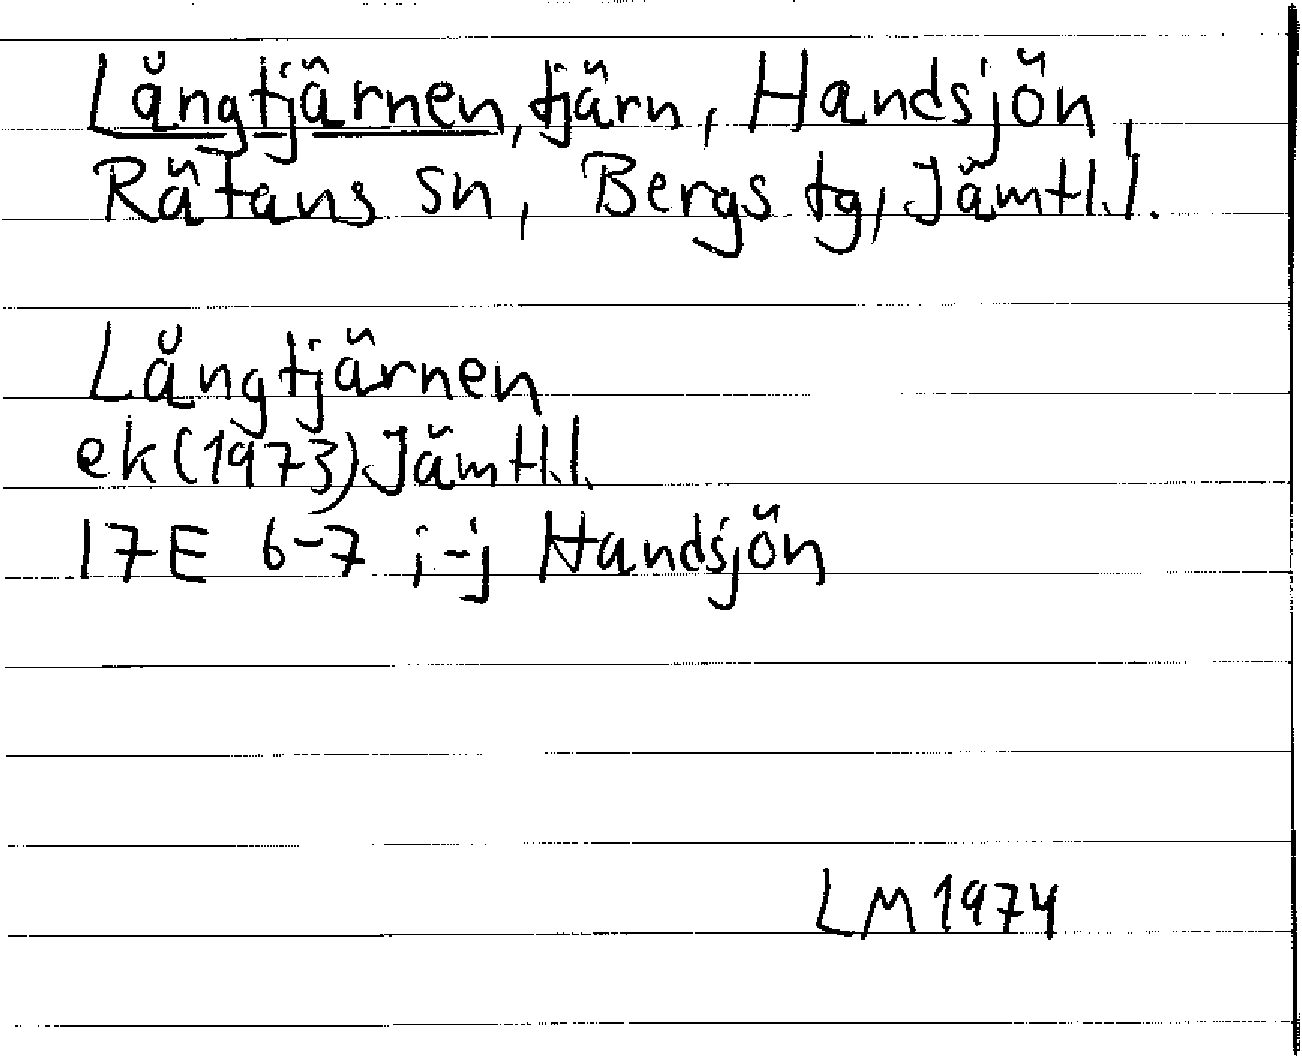 Långtjärnen, tjärn, Handsjön,
Rätans sn, Bergs tg, Jämtl.l.
Långtjärnen
ek(1973) Jämtl.l.
17E 6-7 i-j Handsjön
LM 1974